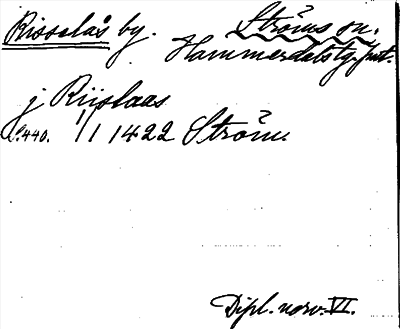 Risselås by. Ströms sn.
Hammerdals tg. Jmt.
j Riislaas
s. 440. 1/1 1422 Ström.
Dipl. norv. VI.